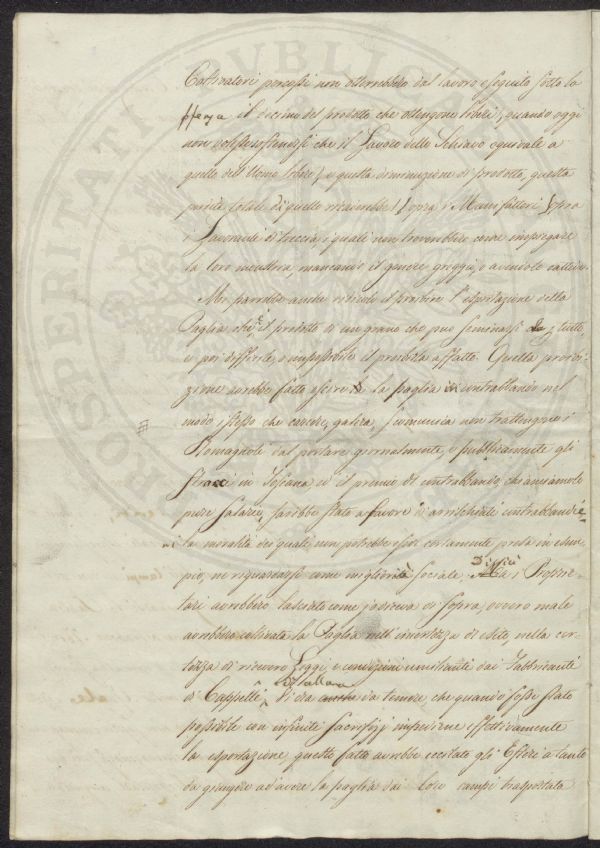 Coltivatori percossi non otterrebbero dal lavoro eseguito sotto la
sferza il decimo del prodotto che ottengono liberi, quando oggi
non volesse sostenersi che il Lavoro dello Schiavo equivale a
quello dell'Uomo libero; e questa diminuzione di prodotto, questa
perdita totale di quello recaderebbe sopra i Manifattori, sopra
i Lavoranti di treccia, i quali non troverebbero come impiegare
la loro industria, mancando il genere greggio, o avendolo cattivo.
Mi parrebbe anche ridicolo il proibire l'esportazione della
Paglia, che è il prodotto di un grano che può seminarsi da tutti,
e poi difficile, o impossibile il proibirla affatto. Questa proibi-
zione avrebbe fatto escire la paglia in contrabbando nel
modo istesso che carcere, galera, scomunica non trattengono i
Romagnoli dal portare giornalmente, e pubblicamente gli
Stracci in Toscana, ed il premio di contrabbando, chiamiamolo
pure Salario, sarebbe stato a favore di arrischiati contrabbandie-
ri la moralità dei quali non potrebbe esser certamente presa in esem-
pio, ne riguardarsi come migliorata sociale. Difficile i Proprie-
tari avrebbero lasciato come si diceva di sopra, ovvero male
avrebbero coltivata la Paglia nell'incertezza di esito, nella cer-
tezza di ricevere Leggi, e condizioni umilianti dai Fabbricanti
di Cappelli. Vi era da temere, che quando fosse stato
possibile con infiniti sacrifizj impedirne effettivamente
la esportazione, questo fatto avrebbe eccitato gli Esteri a tanto
da giungere ad avere la paglia dai loro campi trasportata